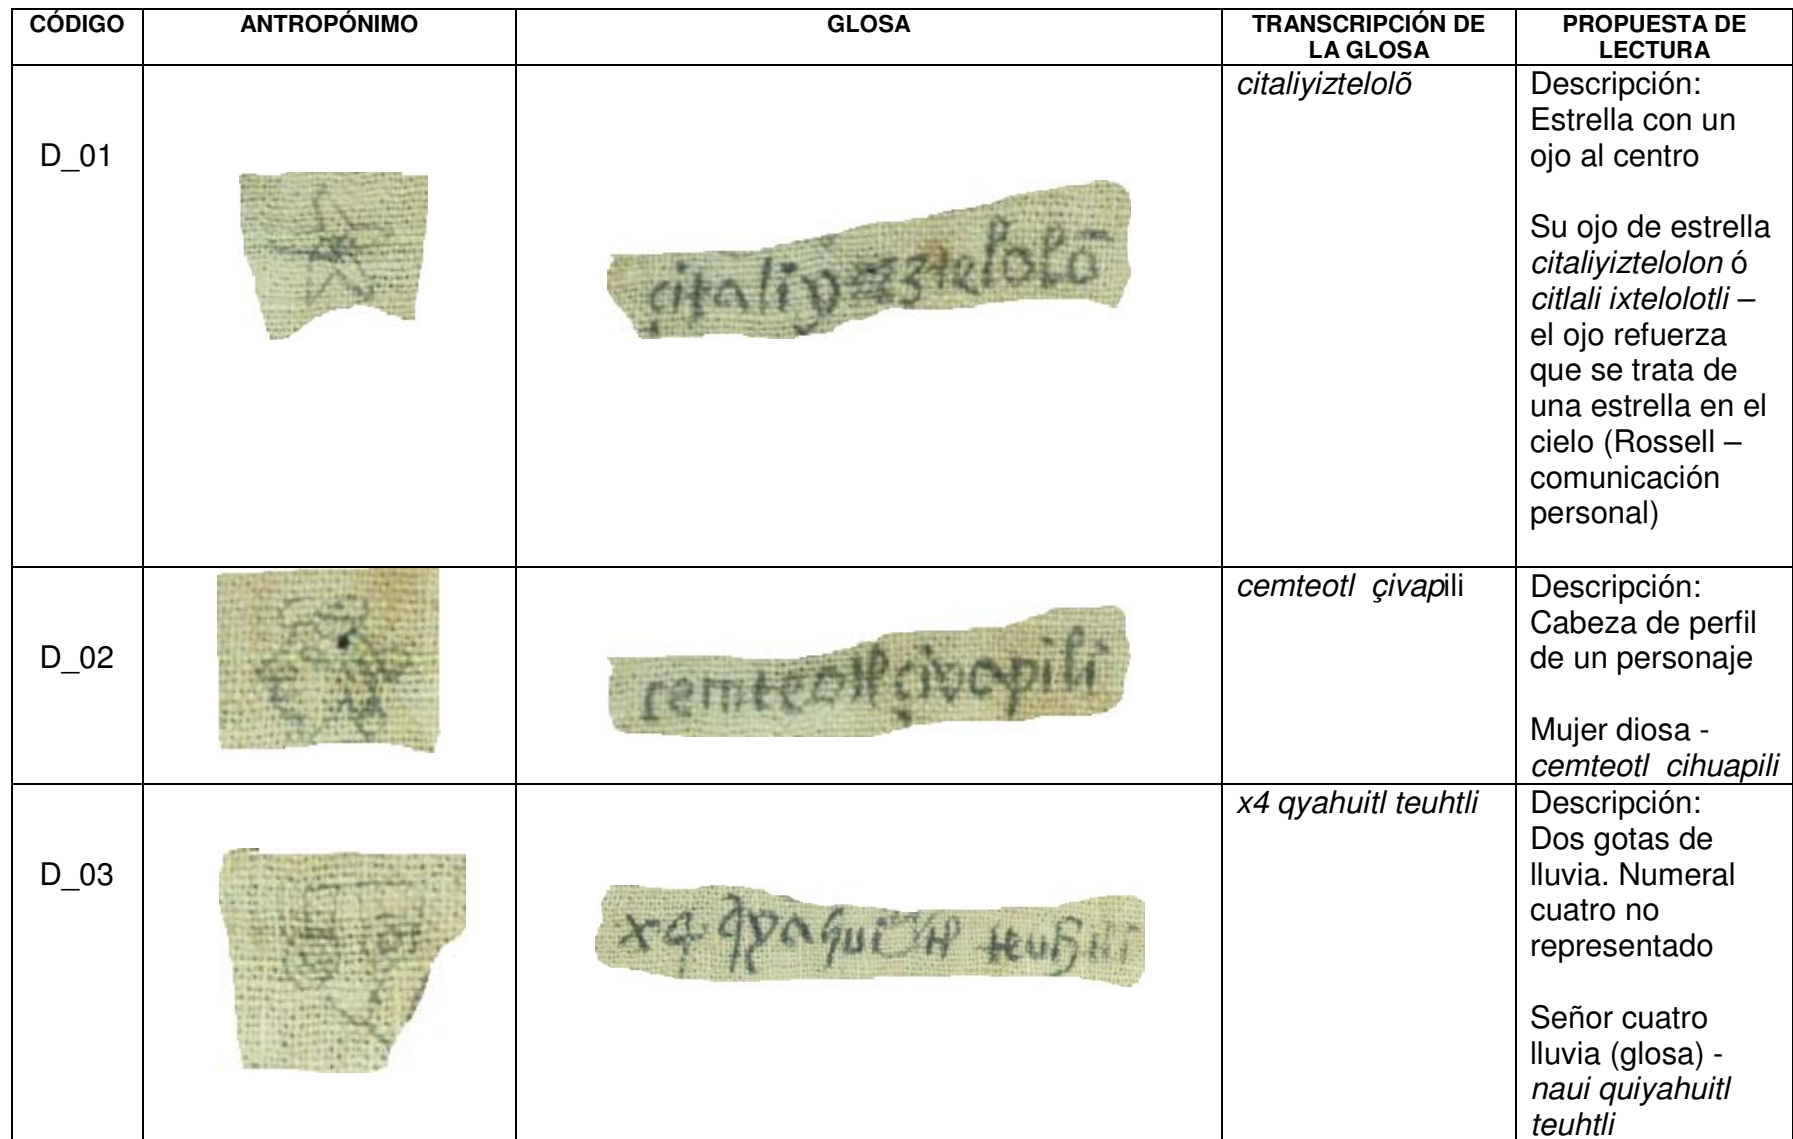 CÓDIGO
ANTROPÓNIMO
GLOSA
TRANSCRIPCIÓN DE
LA GLOSA
PROPUESTA DE
LECTURA
D_01
çitaliyiztelolō
citaliyiztelolõ
Descripción:
Estrella con un
ojo al centro
Su ojo de estrella
citaliyiztelolon ó
citlali ixtelolotli –
el ojo refuerza
que se trata de
una estrella en el
cielo (Rossell –
comunicación
personal)
D_02
cemteotl çivapili
cemteotl çivapili
Descripción:
Cabeza de perfil
de un personaje
Mujer diosa -
cemteotl cihuapili
D_03
x4 qyahuitl teuhtli
x4 qyahuitl teuhtli
Descripción:
Dos gotas de
lluvia. Numeral
cuatro no
representado
Señor cuatro
lluvia (glosa) -
naui quiyahuitl
teuhtli